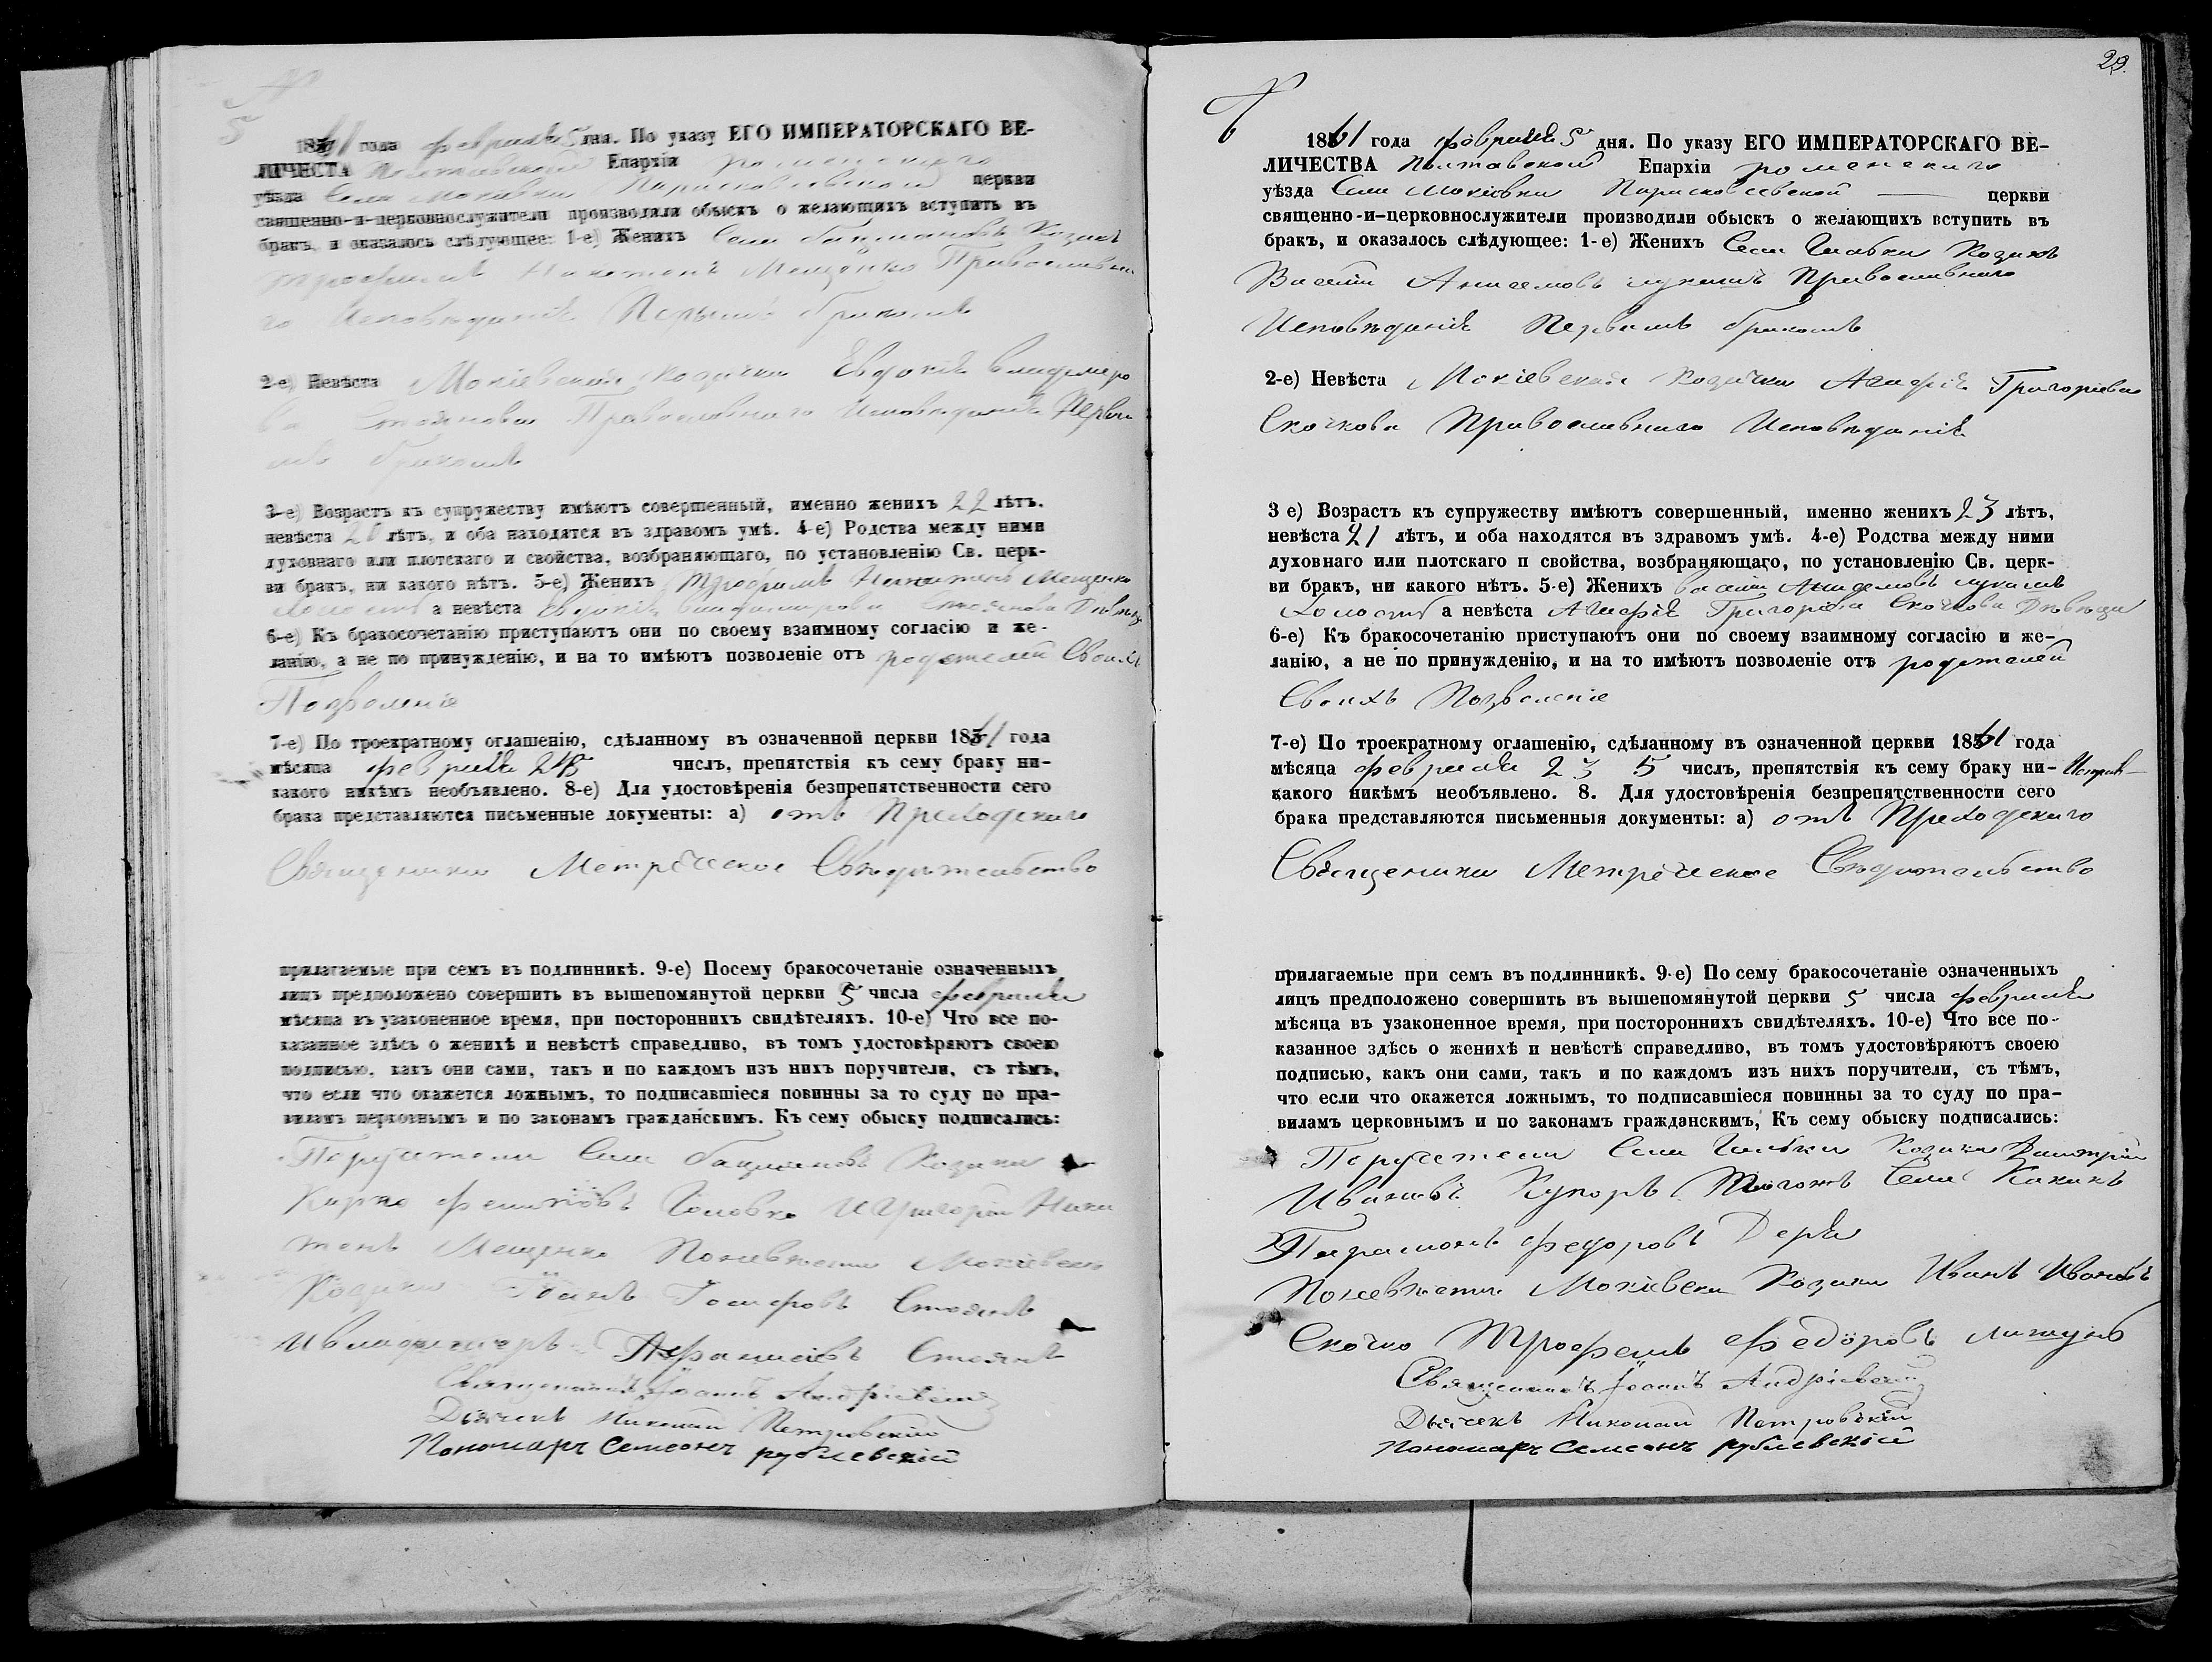 5
1861 года февраля 5 дня. По указу ЕГО ИМПЕРАТОРСКАГО ВЕ-
ЛИЧЕСТА Полтавской Епархіи роменскаго
уѣзда Села Мокіевки Парасковіевской церкви
священно-и-церковнослужители производили обыскъ о желающихъ вступить въ
бракъ, и оказалось слѣдующее: 1-е) Женихъ Села Козакъ
Трофимъ Никитинъ Мещенко Православна
го Исповѣданія Первымъ бракомъ
2-е) Невѣста Мокіевская козачка Евдокія владимеро
ва Стоянова Православнаго Исповѣданія Первы
мъ бракомъ
3-е) Возрастъ къ супружеству имѣютъ совершенный, именно женихъ 22 лѣтъ.
невѣста 20 лѣтъ, и оба находятся въ здравомъ умѣ. 4-е) Родства между ними
духовнаго или плотскаго и свойства, возбраняющаго, по установленію Св. церк-
ви бракъ, ни какого нѣтъ. 5-е) Женихъ Трофимъ Никитинъ Мещенко
холостъ а невѣста Евдокія владимирова Стоянова Дѣвица
6-е) Къ бракосочетанію приступаютъ они по своему взаимному согласію и же-
ланію, а не по принужденію, и на то имѣютъ позволеніе отъ родителей Своихъ
Позволеніе
7-е) По троекратному оглашенію, сдѣланному въ означенной церкви 1861 года
мѣсяца февраля числъ, препятствія къ сему браку ни-
какого никѣмъ необъявлено. 8-е) Для удостовѣренія безпрепятственности сего
брака представляются письменные документы: а) отъ Преходскаго
Священика Метрѣческое Свѣдѣтельство
прилагаемые при семъ въ подлинникѣ. 9-е) Посему бракосочетаніе означенныхъ
лицъ предположено совершить въ вышепомянутой церкви 5 числа февраля
мѣсяца въ узаконенное время, при постороннихъ свидѣтеляхъ. 10-е) Что все по-
казанное здѣсь о женихѣ и невѣстѣ справедливо, въ томъ удостовѣряютъ своею
подписью, какъ они сами, такъ и по каждомъ изъ нихъ поручители, съ тѣмъ,
что если что окажется ложнымъ, то подписавшіеся повинны за то суду по пра-
виламъ церковнымъ и по законамъ гражданскимъ. Къ сему обыску подписались:
Поручители Села Козаки
Карпо Головко И Григорій Ники
тинъ Мещенко Поневѣсти Мокіевски
Козаки Іосифовъ Стоянъ
Ивладимеръ Стоянъ
Священникъ Іоаннъ Андріевскій
Дьячекъ Николай Петровскій
Пономарь Семеонъ рублевскій
29.
6
1861 года февраля 5 дня. По указу ЕГО ИМПЕРАТОРСКАГО ВЕ-
ЛИЧЕСТВА Полтавской Епархіи роменскаго
уѣзда Села Мокіевки Парасковіевской церкви
священно-и-церковнослужители производили обыскъ о желающихъ вступить въ
бракъ, и оказалось слѣдующее: 1-е) Женихъ Села Козакъ
Василій Анисимовъ Православнаго
Исповѣданія Первымъ бракомъ
2-е) Невѣста Мокіевская Козачка Агафія Григоріева
Скочкова Православнаго Исповѣданія
3 е) Возрастъ къ супружеству имѣютъ совершенный, именно женихъ 23 лѣтъ,
невѣста 21 лѣтъ, и оба находятся въ здравомъ умѣ. 4-е) Родства между ними
духовнаго или плотскаго п свойства, возбраняющаго, по установленію Св. церк-
ви бракъ, ни какого нѣтъ. 5-е) Женихъ василій Анисимовъ
холостъ а невѣста Агафія Григорѣва Скочкова Дѣвѣца
6-е) Къ бракосочетанію приступаютъ они по своему взаимному согласію и же-
ланію, а не по принужденію, и на то имѣютъ позволеніе отъ родителей
Своихъ Позволеніе
7-е) По троекратному оглашенію, сдѣланному въ означенной церкви 1861 года
мѣсяца февраля 2 3 5 числъ, препятствія къ сему браку ни-
какого никѣмъ необъявлено. 8. Для удостовѣренія безпрепятственности сего
брака представляются письменныя документы: а) отъ Преходскаго
Священика Метрѣческое Свѣдѣтельство
прилагаемые при семъ въ подлинникѣ. 9-е) По сему бракосочетаніе означенныхъ
лицъ предположено совершить въ вышепомянутой церкви 5 числа февраля
мѣсяца въ узаконенное время, при постороннихъ свидѣтеляхъ. 10-е) Что все по-
казанное здѣсь о женихѣ и невѣстѣ справедливо, въ томъ удостовѣряютъ своею
подписью, какъ они сами, такъ и по каждомъ изъ нихъ поручители, съ тѣмъ,
что если что окажется ложнымъ, то подписавшіеся повинны за то суду по пра-
виламъ церковнымъ и по законамъ гражданскимъ, Къ сему обыску подписались:
Поручетели Села Козаки Димитрій
Ивановъ Села
Парамонъ Федоровъ
Поневѣсти Мокіевски Козаки Иванъ Ивановъ
Скочко Трофемъ Федоровъ
Священникъ Іоаннъ Андріевскій
Дьячекъ Николай Петровскій
Пономарь Семеонъ рублевскій